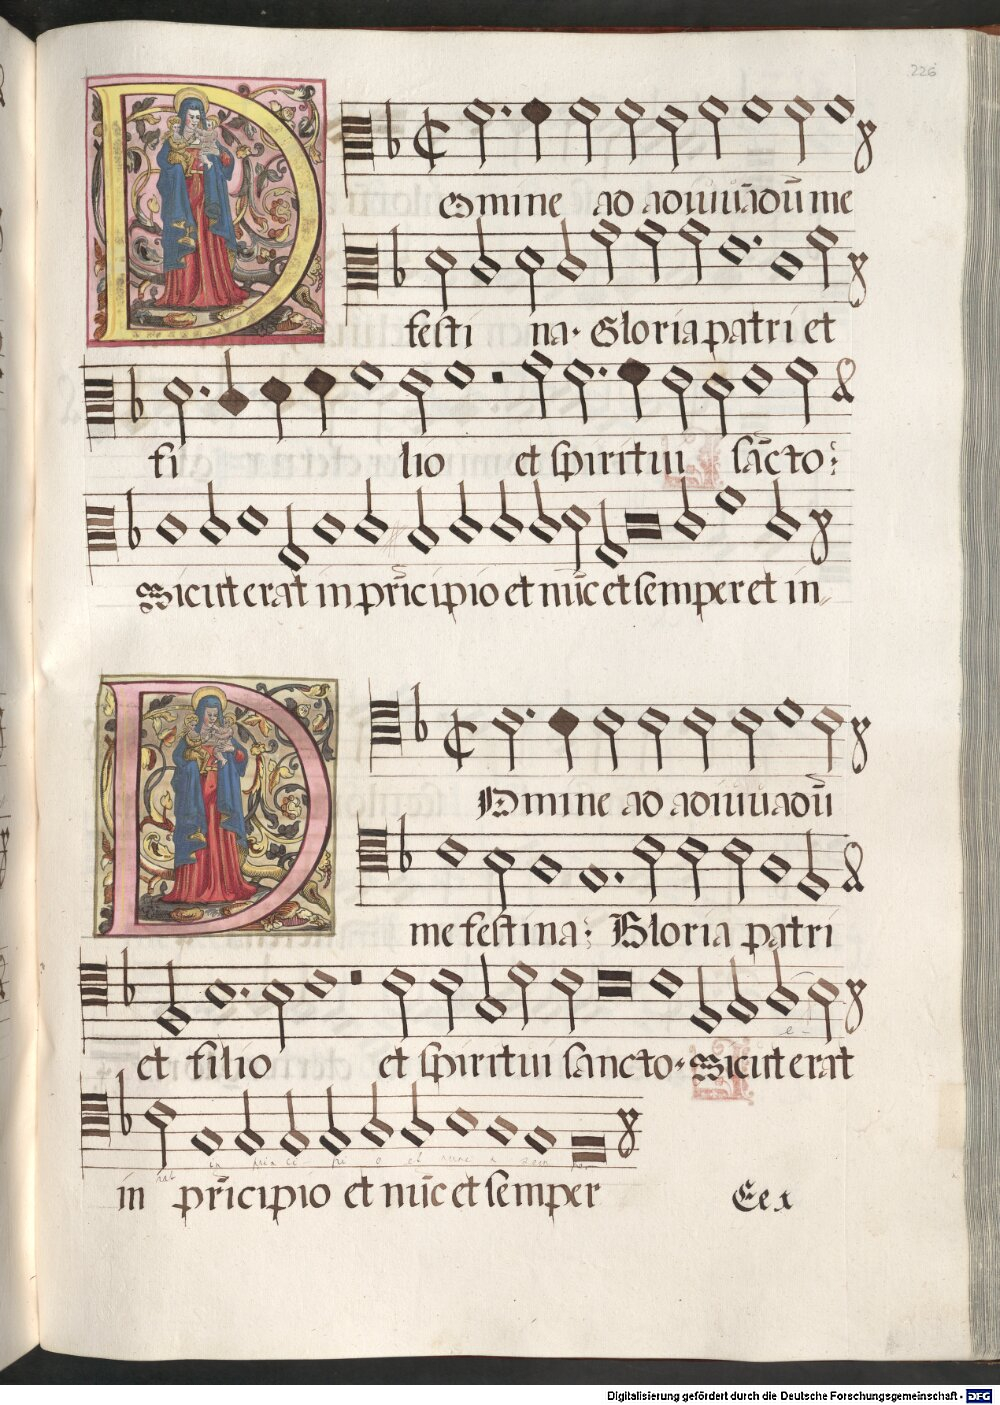 226
Domine ad adiuuādū me
festi na. Gloria patri et
fi lio et spiritui sācto:
Sicut erat in prīcipio et nūc et semper et in
Domine ad adiuuadū
me festina: Gloria patri
et filio et spiritui sancto. Sicut erat
in prīcipio et nūc et semper
Ee x
Digitalisierung gefördert durch die Deutsche Forschungsgemeinschaft - DFG